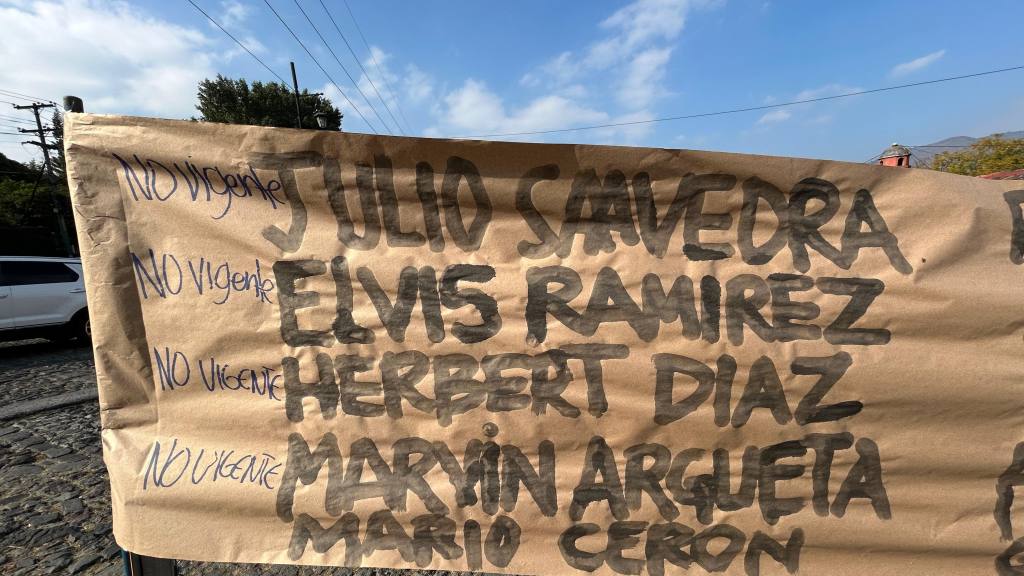 NO Vigente JULIO SAAVEDRA
NO Vigente ELVIS RAMIREZ
NO VIGENTE HERBERT DIAZ
NO VIGENTE MARViN ARGUETA
MARIO CERON